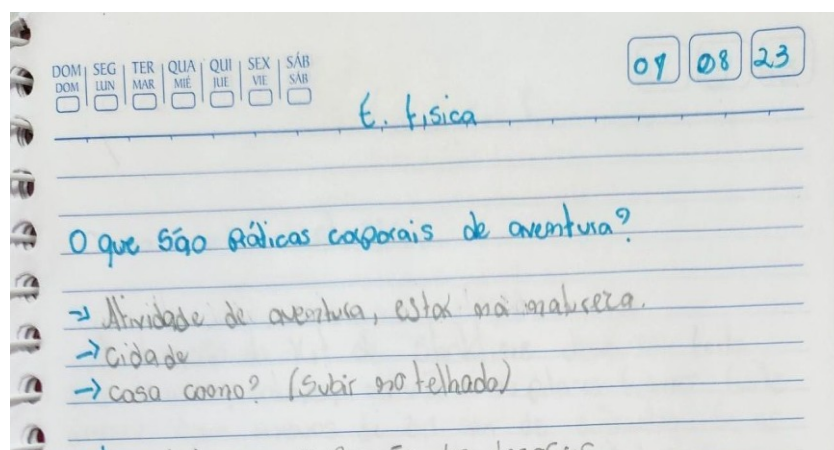 DOM SEG TER QUA QUI SEX SÁB
DOM LUN MAR MIÉ JUE VIE SÁB
07 08 23
E. física
O que são práticas corporais de aventura?
→ Atividade de aventura, estar na natureza.
→ cidade
→ casa como? (subir no telhado)